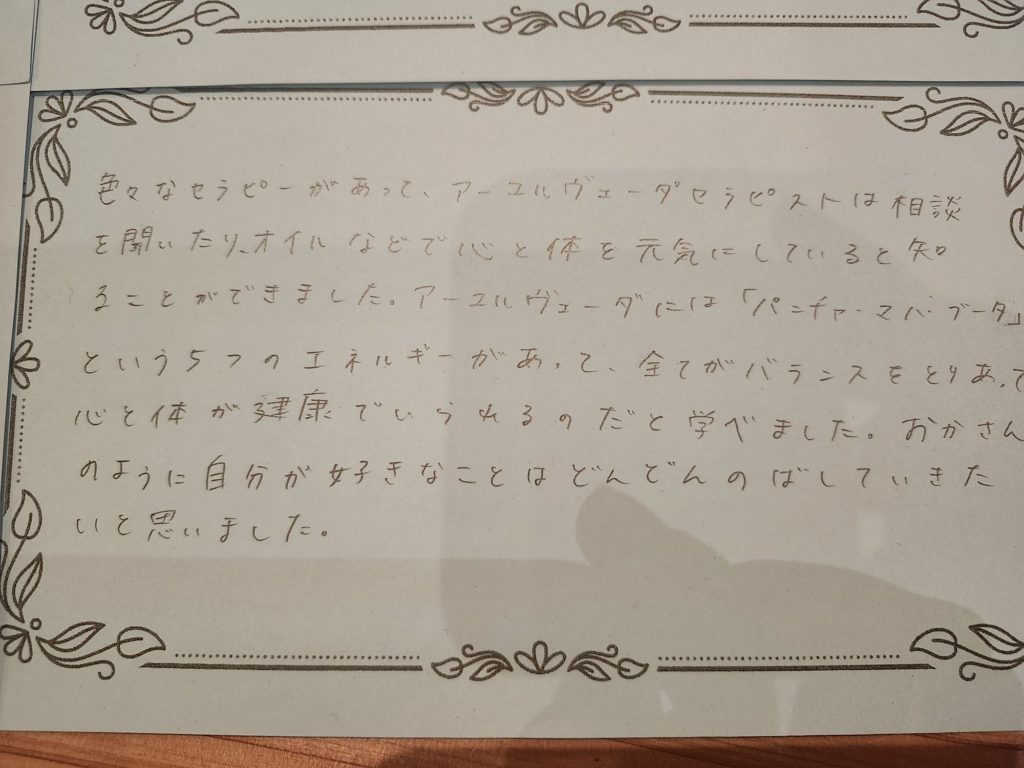 色々なセラピーがあって、アーユルヴェーダセラピストは相談
を聞いたり、オイルなどで心と体を元気にしていると知
ることができました。アーユルヴェーダには「パンチャ・マハ・ブータ」
という5つのエネルギーがあって、全てがバランスをとりあって
心と体が健康でいられるのだと学べました。おかさん
のように自分が好きなことはどんどんのばしていきた
いと思いました。